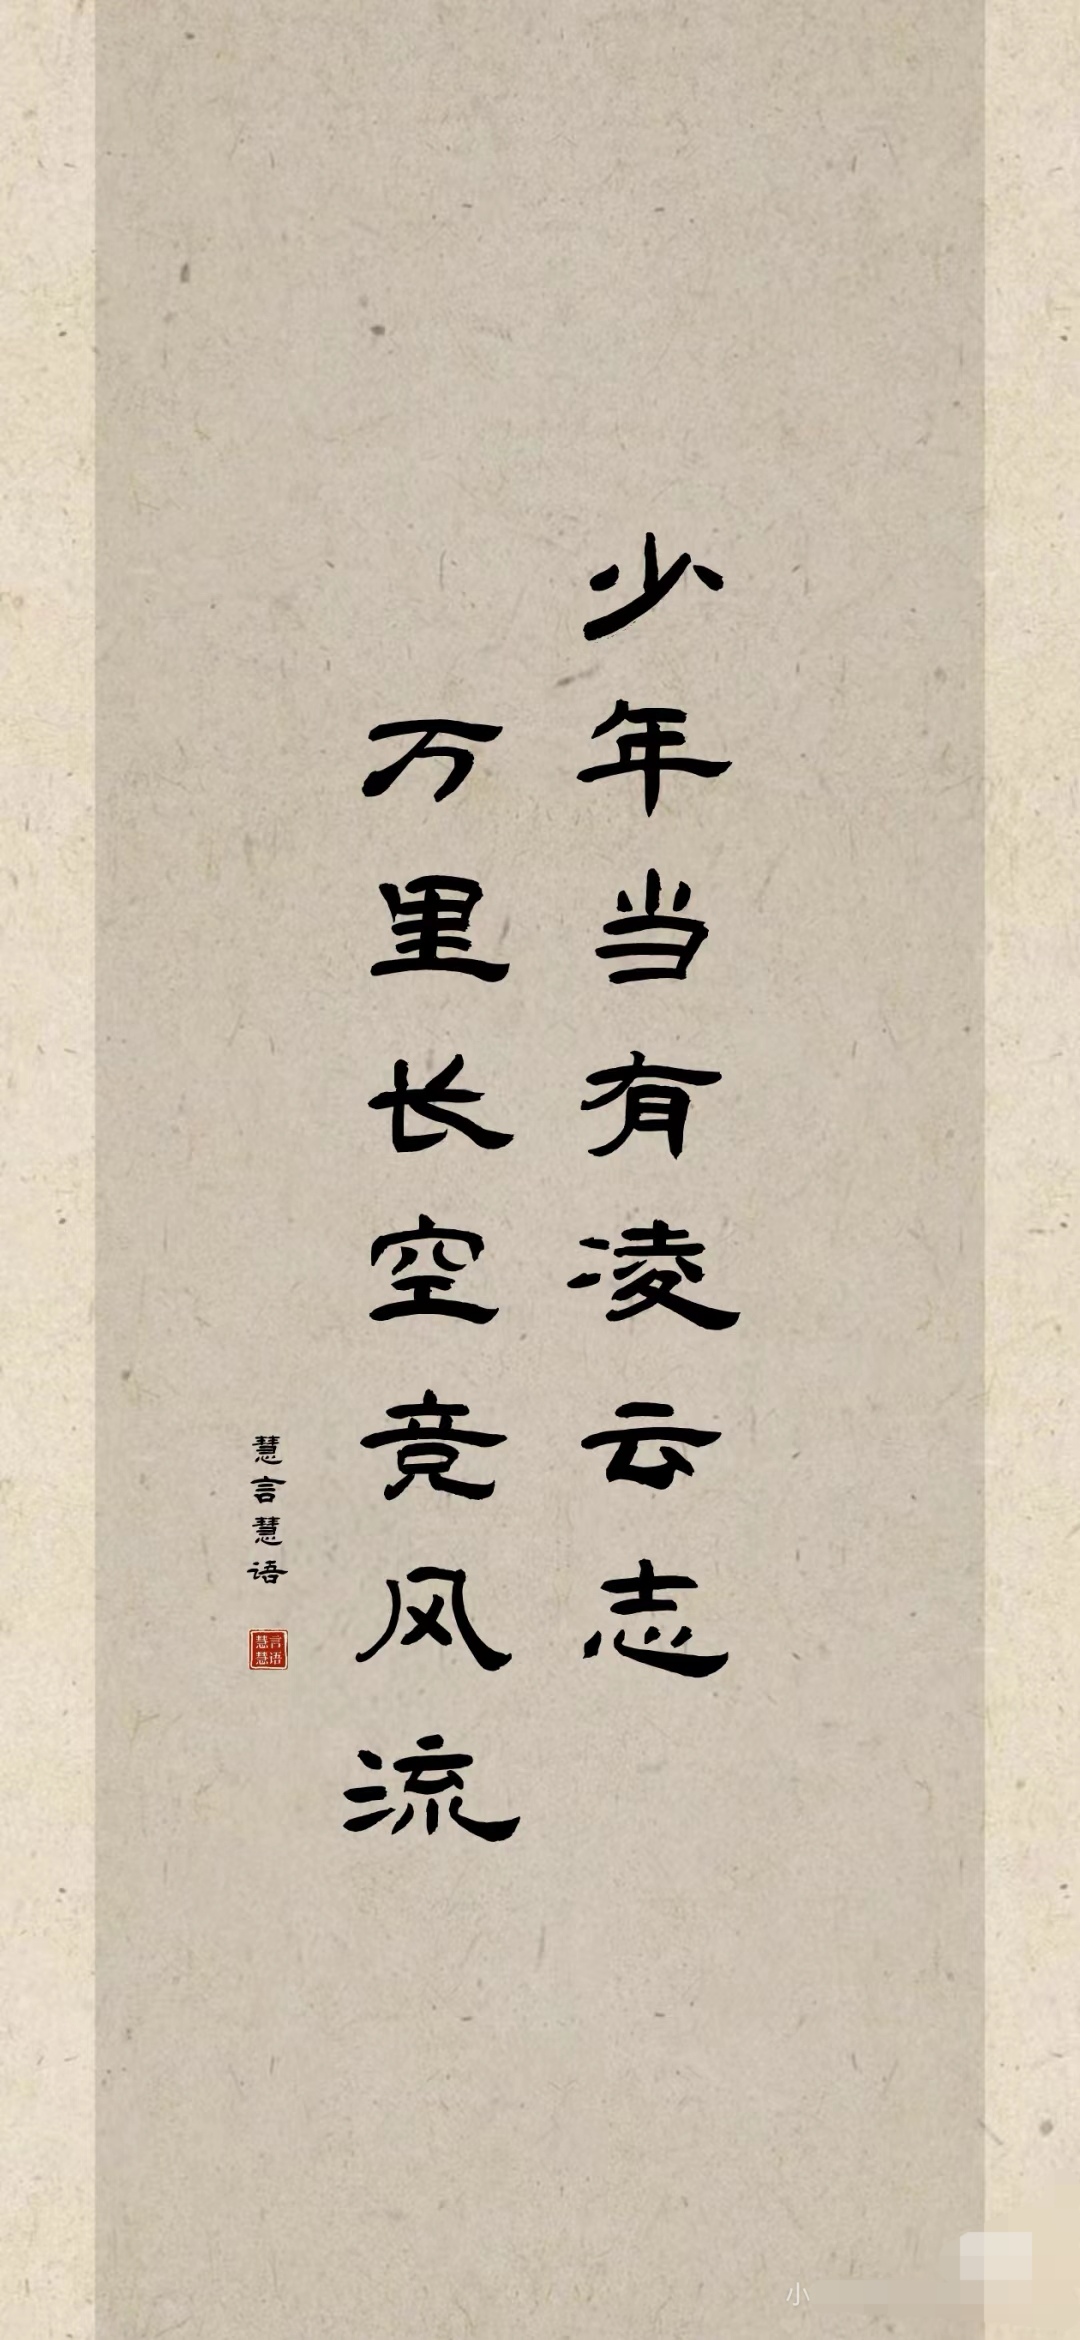 少年当有凌云志
万里长空竞风流
慧言慧语
慧言慧语
小